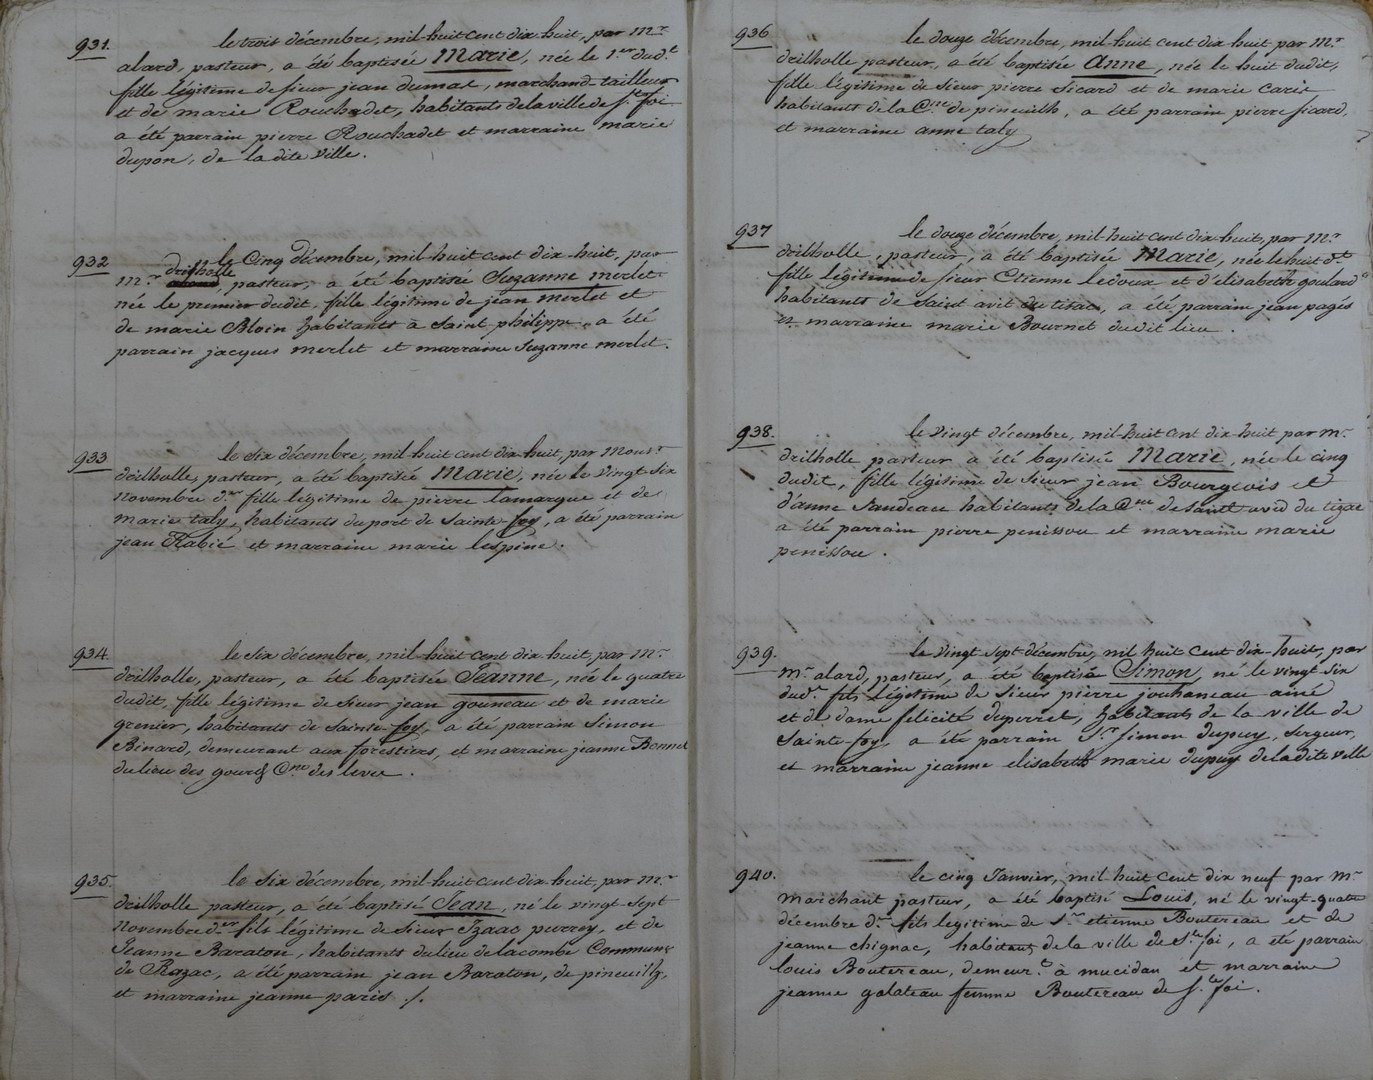 931. le trois décembre, mil-huit cent dix-huit, par Mr.
alard, pasteur, a été baptisée Marie, née le 1.er dud.t
fille légitime de sieur jean dumas, marchand-tailleur
et de marie Rouchadet, habitants de la ville de s.te foi
a été parrain pierre Rouchadet et marraine marie
dupon, de la dite ville.
932 le Cinq décembre, mil-huit cent dix-huit, par
drilholle
mr. alard, pasteur, a été baptisée Suzanne merlet
née le premier dudit, fille légitime de jean merlet et
de marie Bloin habitants à Saint philippe, a été
parrain jacques merlet et marraine Suzanne merlet.
933 le six décembre, mil-huit cent dix-huit, par Monsr.
drilholle, pasteur, a été baptisée Marie, née le vingt-six
novembre d.er fille légitime de pierre lamarque et de
marie taly, habitants du port de Sainte-foy, a été parrain
jean Rabié et marraine marie lespine.
934 le six décembre, mil-huit cent dix-huit, par Mr.
drilholle, pasteur, a été baptisée Jeanne, née le quatre
dudit, fille légitime de sieur jean gouneau et de marie
grenier, habitants de Sainte-foy, a été parrain Simon
Binard, demeurant aux forestiers, et marraine jeanne Bonnet
du lieu des gourds Cne. des leves.
935. le six décembre, mil-huit cent dix-huit, par Mr.
drilholle pasteur, a été baptisé Jean, né le vingt-sept
novembre d.er fils légitime de sieur Izaac perrey, et de
Jeanne Baraton, habitants du lieu de lacombe Commune
de Razac, a été parrain jean Baraton, de pineuilh,
et marraine jeanne paris ./.
936 le douze décembre, mil-huit cent dix-huit par Mr.
drilholle pasteur, a été baptisée Anne, née le huit dudit,
fille légitime de sieur pierre Sicard et de marie carié
habitants de la Cne. de pineuilh, a été parrain pierre sicard,
et marraine anne taly
937 le douze décembre, mil-huit cent dix-huit, par Mr.
drilholle, pasteur, a été baptisée Marie, née le huit d.t
fille légitime de sieur Etienne ledoux et d'élisabeth goulard
habitants de Saint avit du tisac, a été parrain jean pagés
et marraine marie Bournet dudit lieu.
938. le vingt décembre, mil-huit cent dix-huit par mr.
drilholle pasteur a été baptisée Marie, née le cinq
dudit, fille légitime de sieur jean Bourgeois et
d'anne Jandeau habitants de la Cne. de saint avid du tizac
a été parrain pierre penissou et marraine marie
penissou.
939. le vingt sept décembre, mil huit cent dix-huit, par
mr. alard, pasteur, a été baptisé Simon, né le vingt-six
dud.t fils légitime de sieur pierre jouhaneau ainé
et de dame félicité duperret, habitants de la ville de
Sainte-foy, a été parrain Sr. simon dupuy, sergeur,
et marraine jeanne elisabeth marie dupuy de la dite ville
940. le cinq Janvier, mil huit cent dix neuf par mr.
marchant pasteur, a été baptisé Louis, né le vingt-quatre
décembre d.er fils légitime de sr. etienne Boutereau et de
jeanne chignac, habitants de la ville de s.te foi, a été parrain
louis Boutereau, demeur.t à mucidan et marraine
jeanne galateau femme Boutereau de s.te foi.